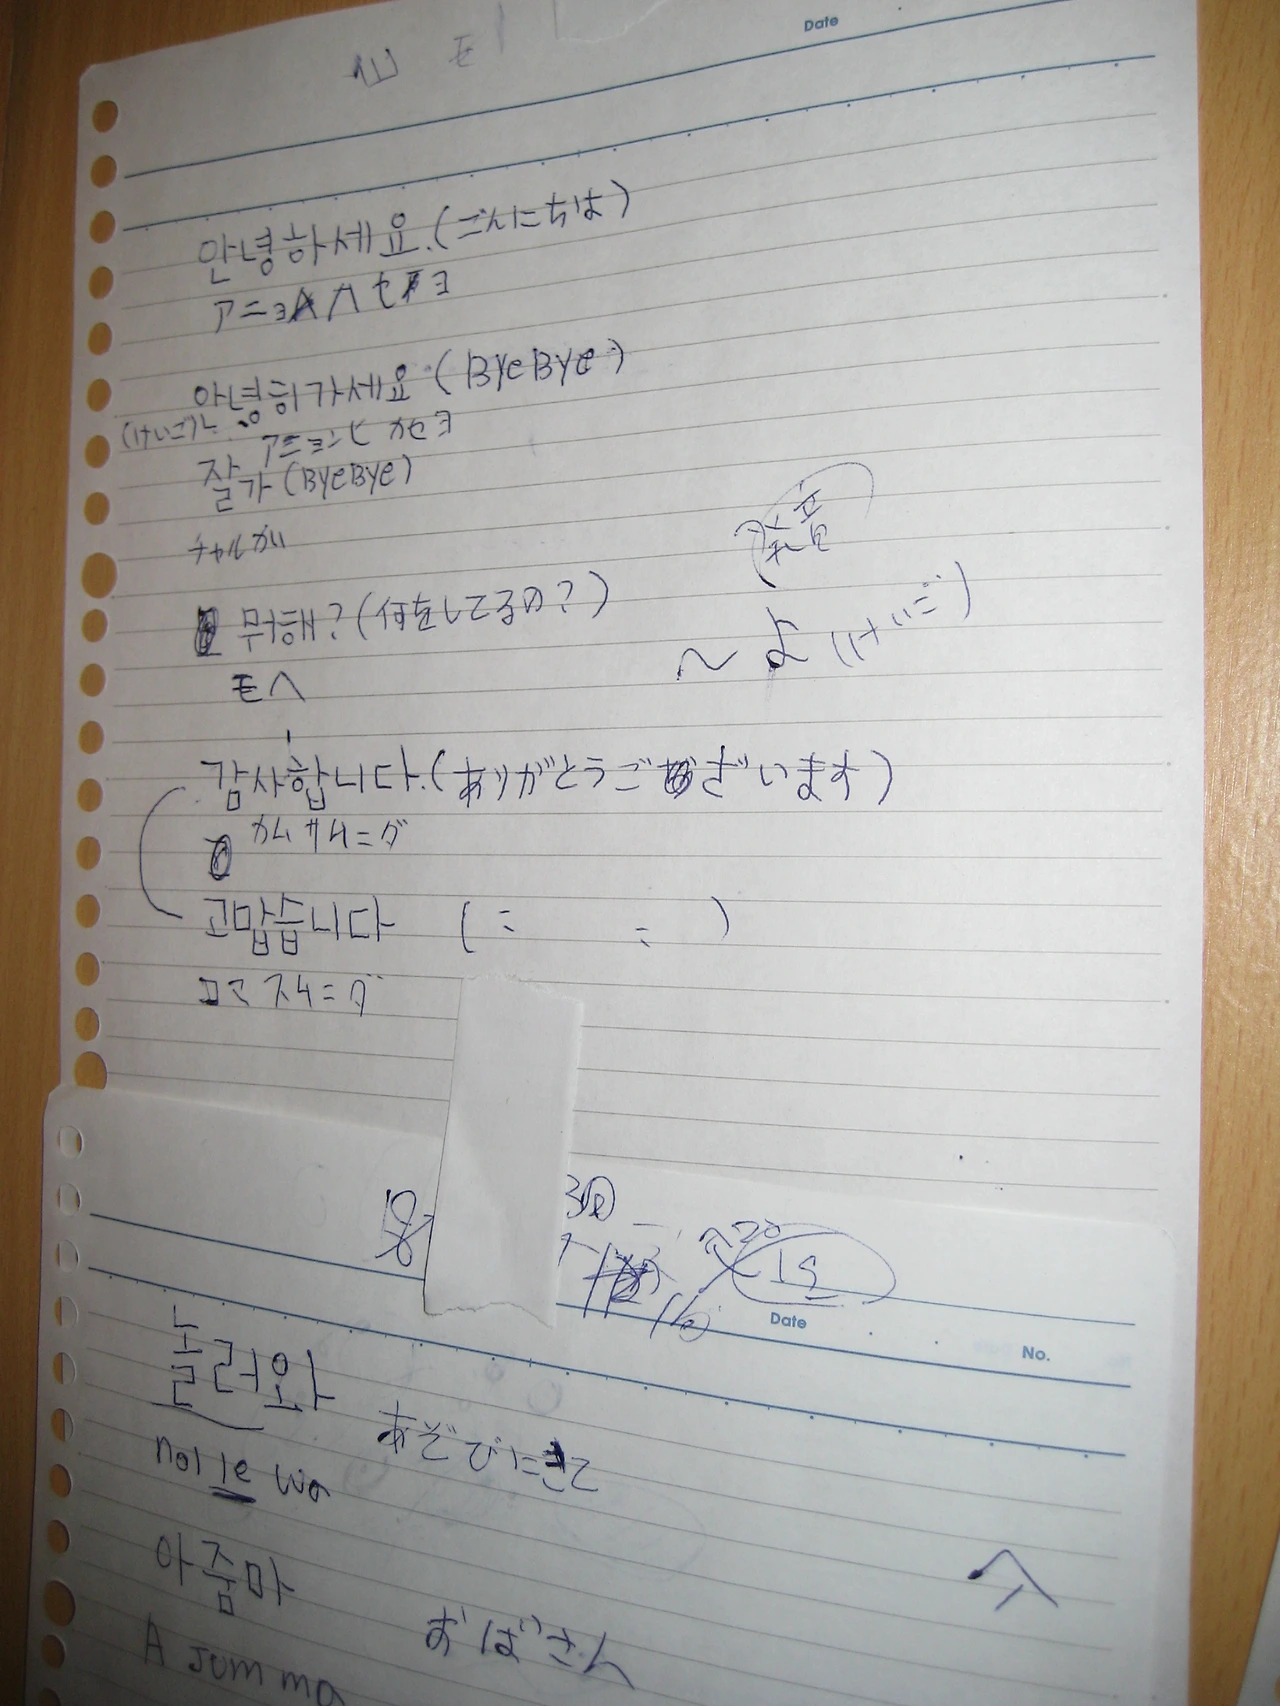 モ
Date
안녕하세요.(こんにちは)
アニョハセヨ
안녕히가세요 (BYeBYe)
(けいご)
アニョンヒ カセヨ
잘가 (BYeBYe)
チャルガ
뭐해?(何をしてるの?)
モヘ
~よ (けいご)
감사합니다.(ありがとうございます)
カムサムニダ
고맙습니다 (〃 〃)
コマスムニダ
19
16
Date
No.
놀러와
あそびにきて
nol le wa
아줌마
おばさん
A Jum ma